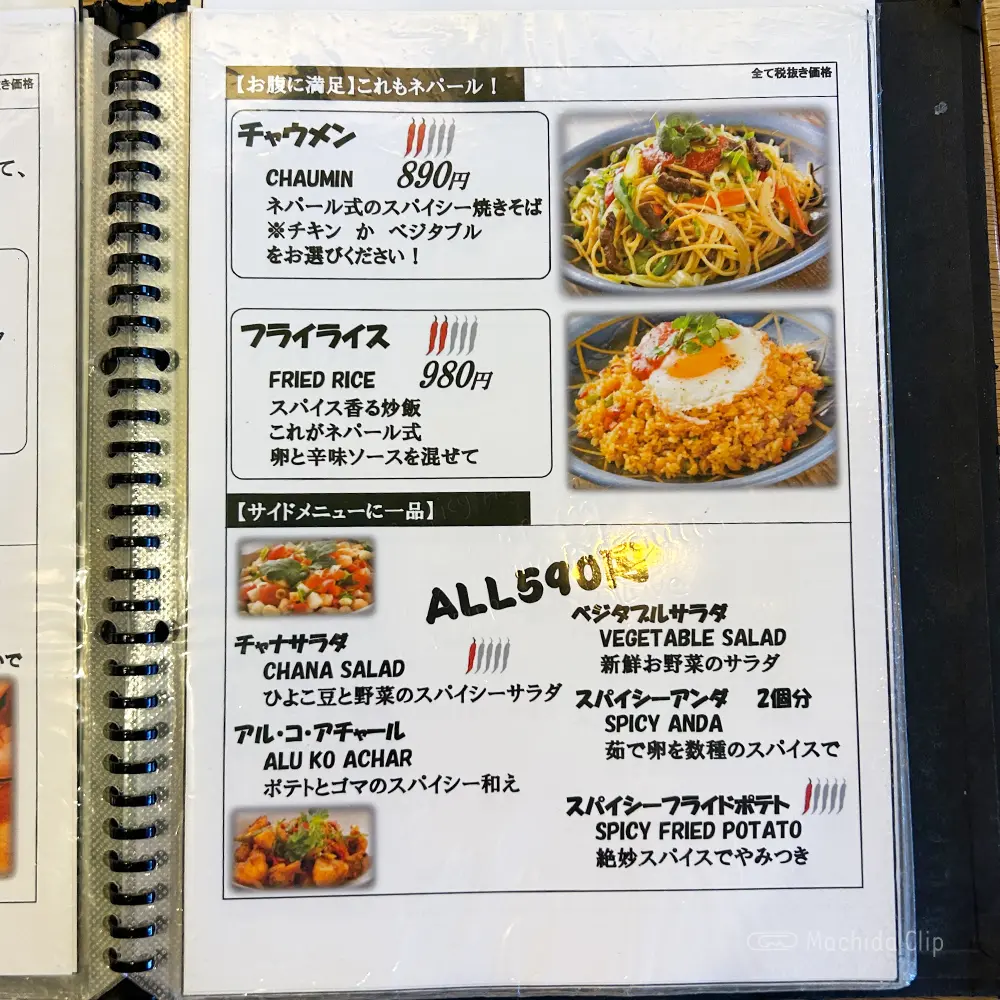 き価格
て、
いで
全て税抜き価格
【お腹に満足】これもネパール！
チャウメン
CHAUMIN 890円
ネパール式のスパイシー焼きそば
※チキン か ベジタブル
をお選びください！
フライライス
FRIED RICE 980円
スパイス香る炒飯
これがネパール式
卵と辛味ソースを混ぜて
【サイドメニューに一品】
ALL590円
チャナサラダ
CHANA SALAD
ひよこ豆と野菜のスパイシーサラダ
アル・コ・アチャール
ALU KO ACHAR
ポテトとゴマのスパイシー和え
ベジタブルサラダ
VEGETABLE SALAD
新鮮お野菜のサラダ
スパイシーアンダ 2個分
SPICY ANDA
茹で卵を数種のスパイスで
スパイシーフライドポテト
SPICY FRIED POTATO
絶妙スパイスでやみつき
Machida Clip